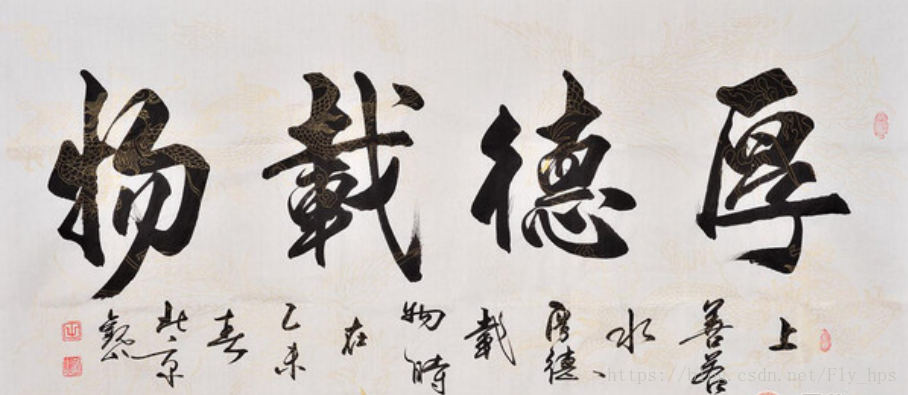 厚德載物
上善若水厚德載物時在乙未春北京
https://blog.csdn.net/Fly_hps